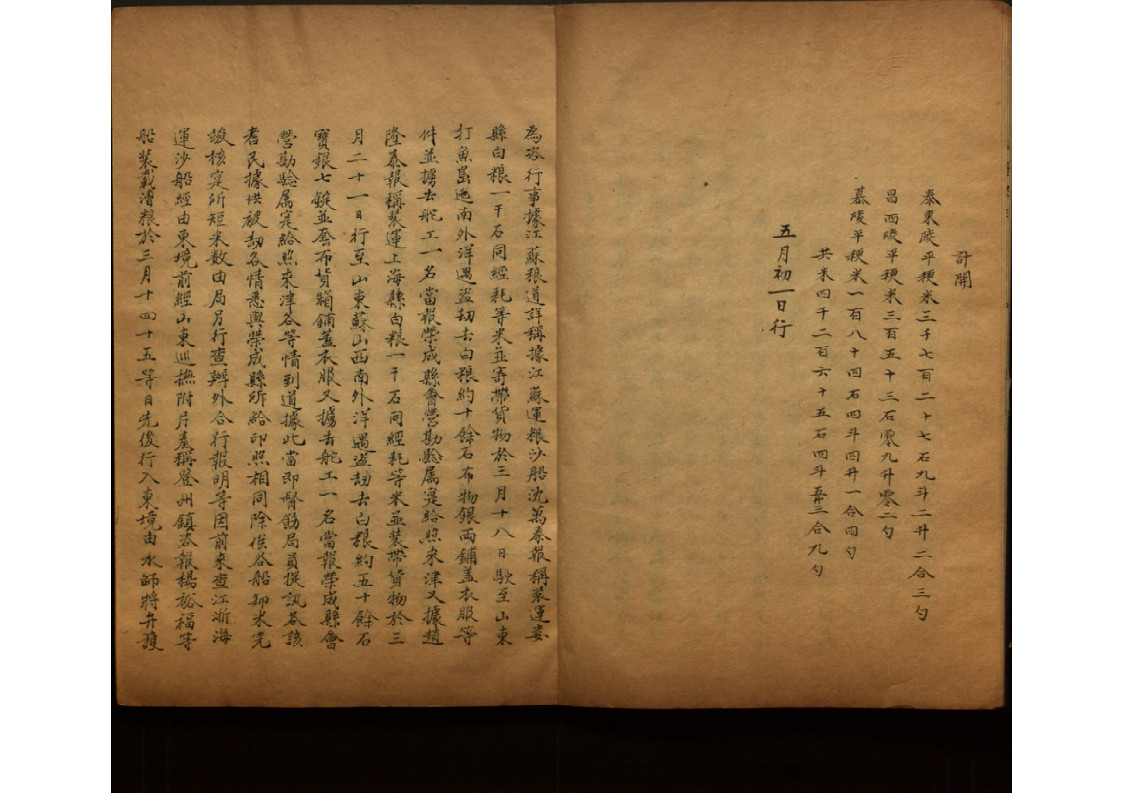 計開
泰東陵平粳米三千七百二十七石九斗二升二合三勺
昌西陵平粳米三百五十三石零九升零二勺
慕陵平粳米一百八十四石四斗四升一合四勺
共米四千二百六十五石四斗 三合九勺
五月初一日行
為咨行事據江蘇糧道詳稱據江蘇運糧沙船沈萬泰報稱裝運婁
縣白糧一千石同經耗等米並寄帶貨物於三月十八日駛至山東
打魚島迤南外洋遇盜刼去白糧約十餘石布物銀兩鋪蓋衣服等
件並擄去舵工一名當報榮成縣會營勘驗屬寔給照來津又據趙
隆泰報稱裝運上海縣白糧一千石同經耗等米並裝帶貨物於三
月二十一日行至山東蘇山西南外洋遇盜刼去白糧約五十餘石
寶銀七錠並 布貨箱鋪蓋衣服又擄去舵工一名當報榮成縣會
營勘驗屬寔給照來津各等情到道據此當即督飭局員提訊各該
耆民據供被刼各情悉與榮成縣所給印照相同除俟各船卸米完
竣核定所短米數由局另行查辦外合行報明等因前來查江浙海
運沙船經由東境前經山東巡撫附片奏稱登州鎮咨報楊裕福等
船裝載漕糧於三月十四十五等日先後行入東境由水師將弁護